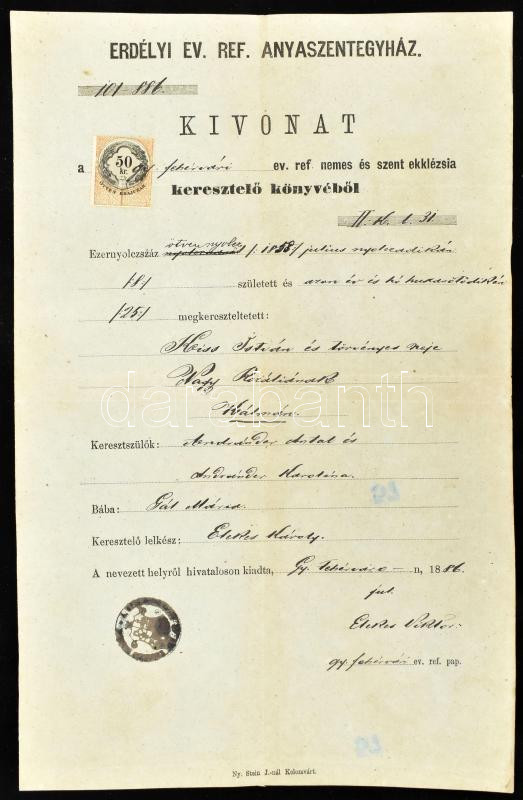 ERDÉLYI EV. REF. ANYASZENTEGYHÁZ.
101-886.
KIVONAT
50
kr.
a gy. fehérvári ev. ref. nemes és szent ekklézsia
keresztelő könyvéből
II. K. l. 31
ötvennyolcz
Ezernyolczszáz /:1858:/ julius nyolczadikán
/:8:/ született és azon év és hó huszonötödikén
/:25:/ megkereszteltetett:
Kiss István és törvényes neje
Nagy Rozáliának
Kálmán.
darabanth
Keresztszülők: Andránder Antal és
Andránder Karolina.
Bába: Gál Mária.
Keresztelő lelkész: Elekes Károly.
A nevezett helyről hivatalosan kiadta, Gy. Fehérvár-n, 1886.
Elekes Viktor.
gy. fehérvári ev. ref. pap.
Ny. Stein J.-nál Kolozsvárt.